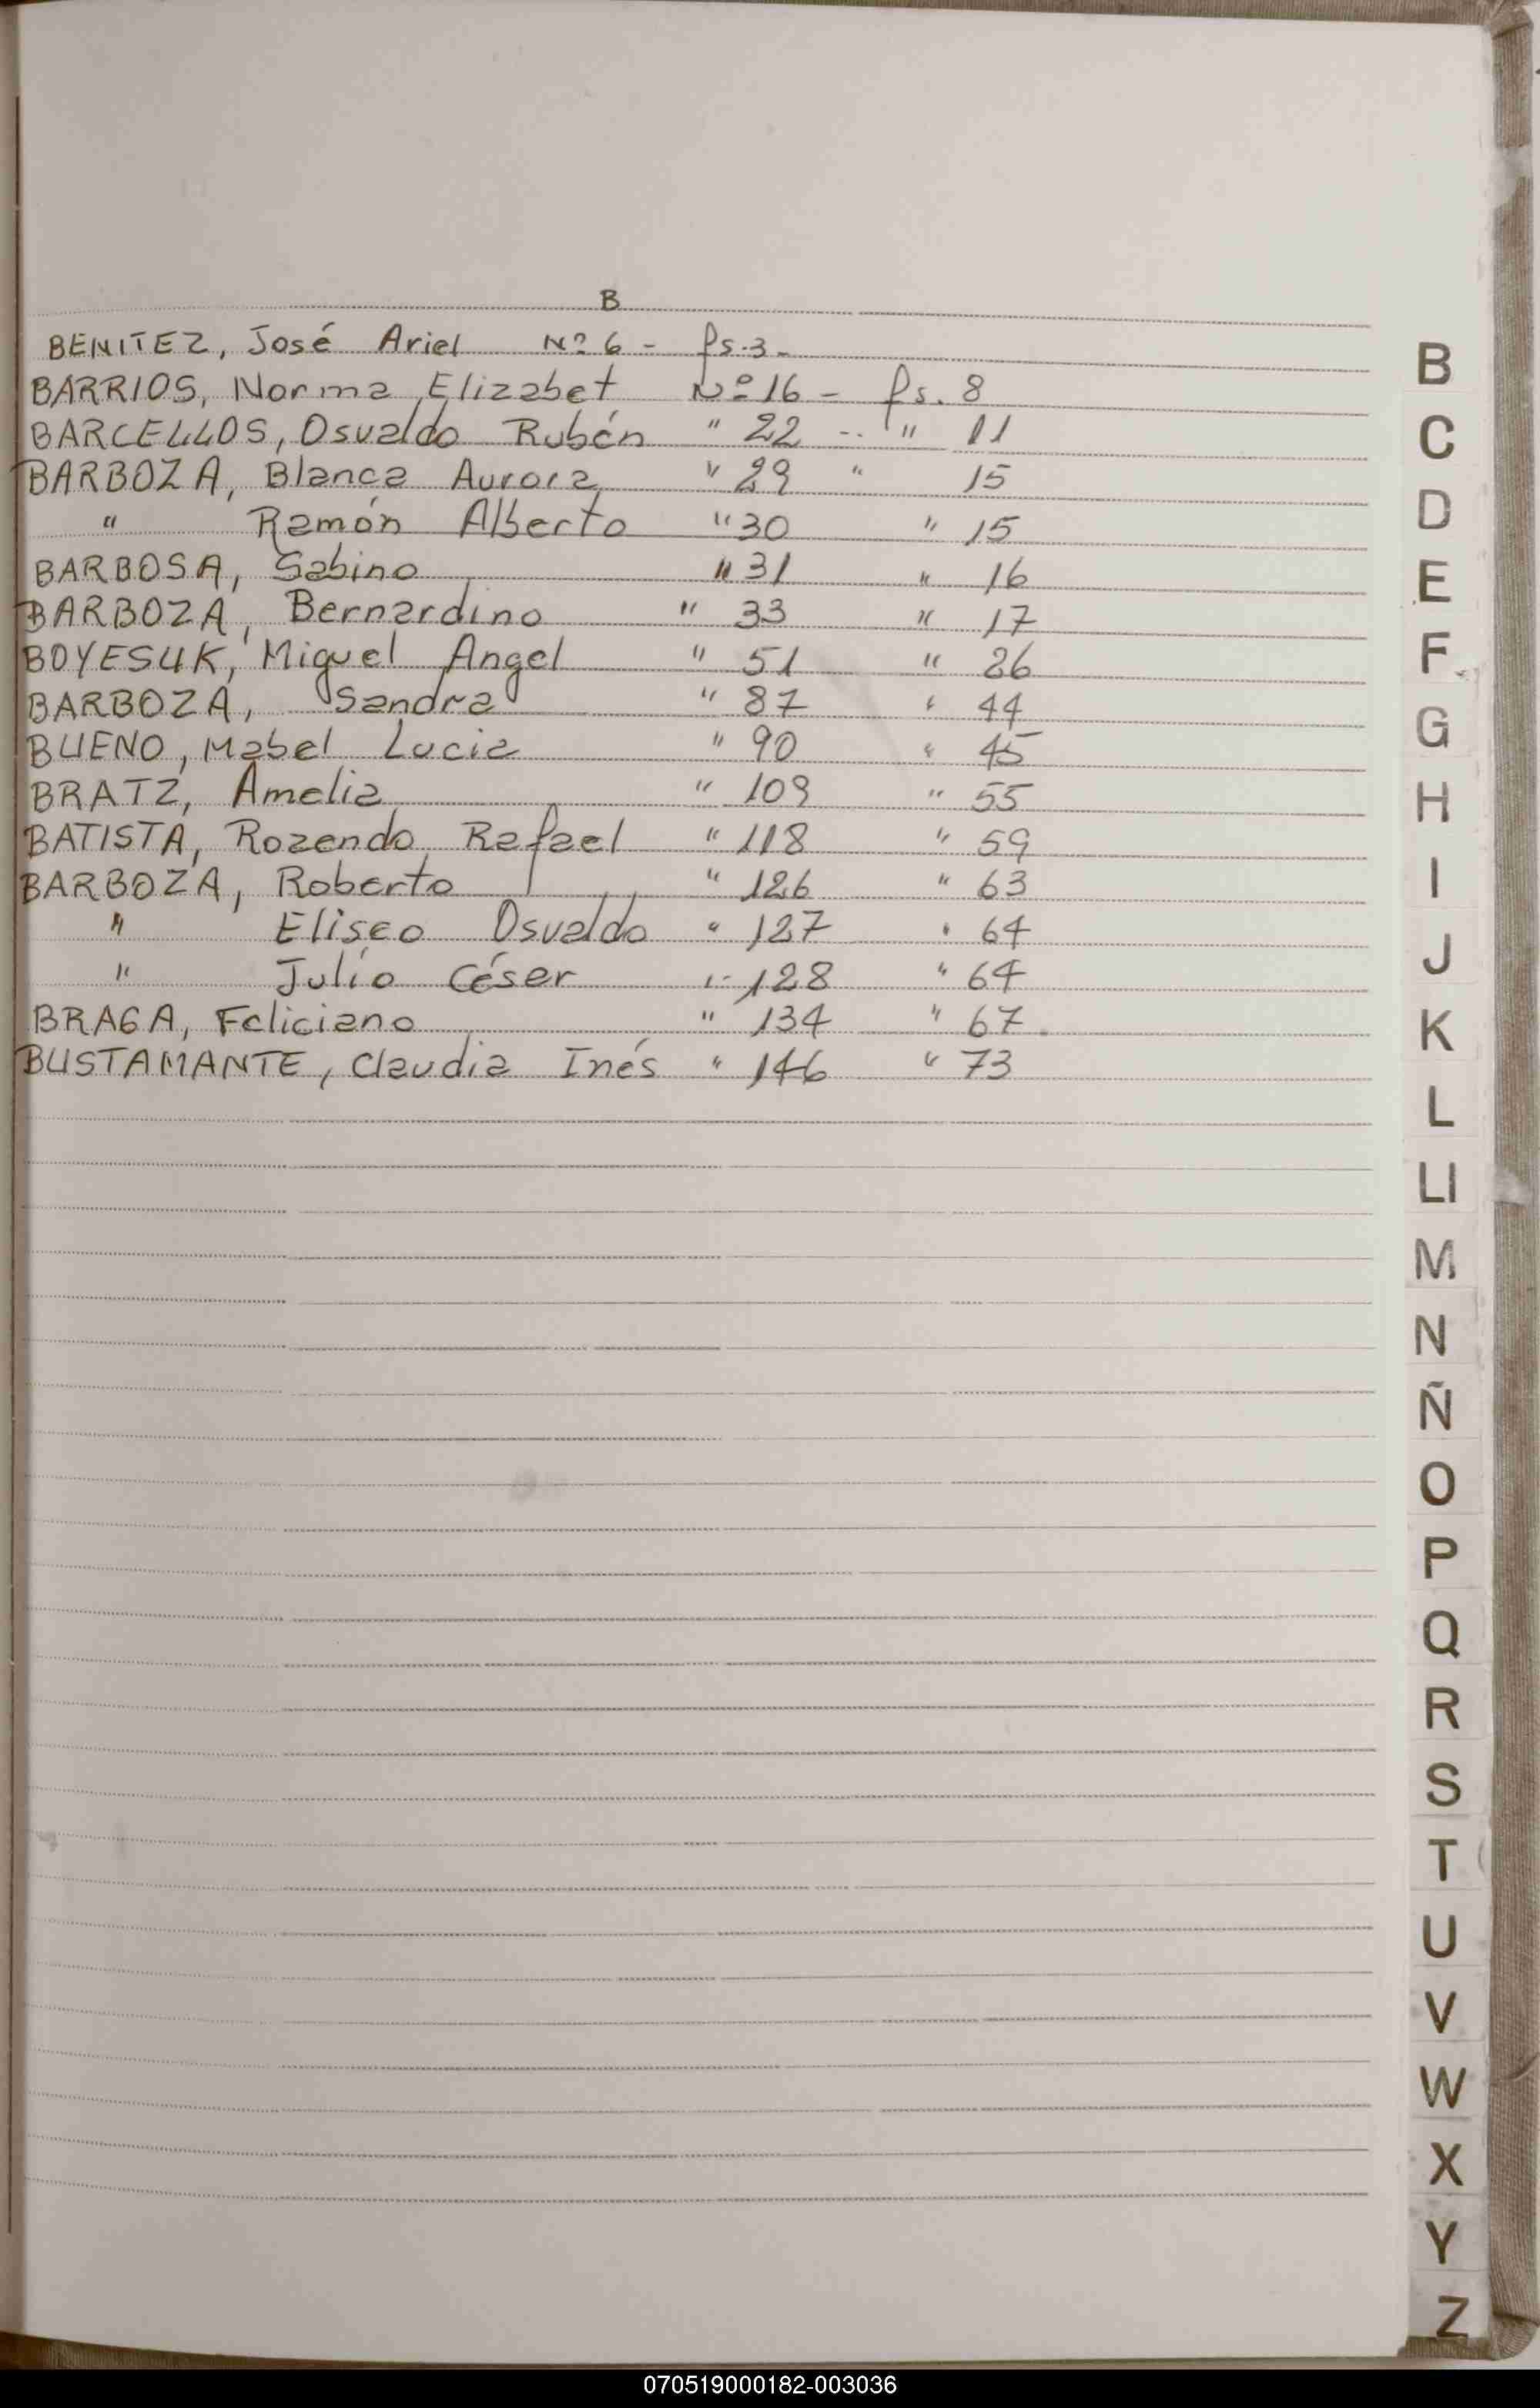 B
BENITEZ, José Ariel Nº 6 - fs. 3 -
BARRIOS, Norma Elizabet Nº 16 - fs. 8
BARCELLOS, Osvaldo Rubén " 22 - " 11
BARBOZA, Blanca Aurora " 29 " 15
" Ramón Alberto " 30 " 15
BARBOSA, Sabino " 31 " 16
BARBOZA, Bernardino " 33 " 17
BOYESUK, Miguel Angel " 51 " 26
BARBOZA, Sandra " 87 " 44
BUENO, Mabel Lucia " 90 " 45
BRATZ, Amelia " 109 " 55
BATISTA, Rozendo Rafael " 118 " 59
BARBOZA, Roberto " 126 " 63
" Eliseo Osvaldo " 127 " 64
" Julio César " 128 " 64
BRAGA, Feliciano " 134 " 67.
BUSTAMANTE, Claudia Inés " 146 " 73
B
C
D
E
F
G
H
I
J
K
L
Ll
M
N
Ñ
O
P
Q
R
S
T
U
V
W
X
Y
Z
070519000182-003036